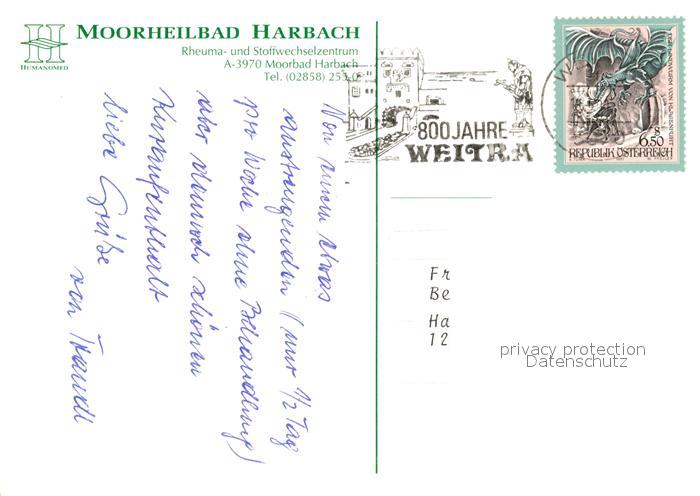 MOORHEILBAD HARBACH
Rheuma- und Stoffwechselzentrum
A-3970 Moorbad Harbach
Tel. (02858) 253-0
HUMANOMED
Von einem etwas
anstrengenden (nur 1/2 Tag
pro Woche ohne Behandlung)
aber dennoch schönen
Kuraufenthalt
liebe Grüße
von
800 JAHRE
WEITRA
6.50
REPUBLIK ÖSTERREICH
Fr
Be
Ha
12
privacy protection
Datenschutz